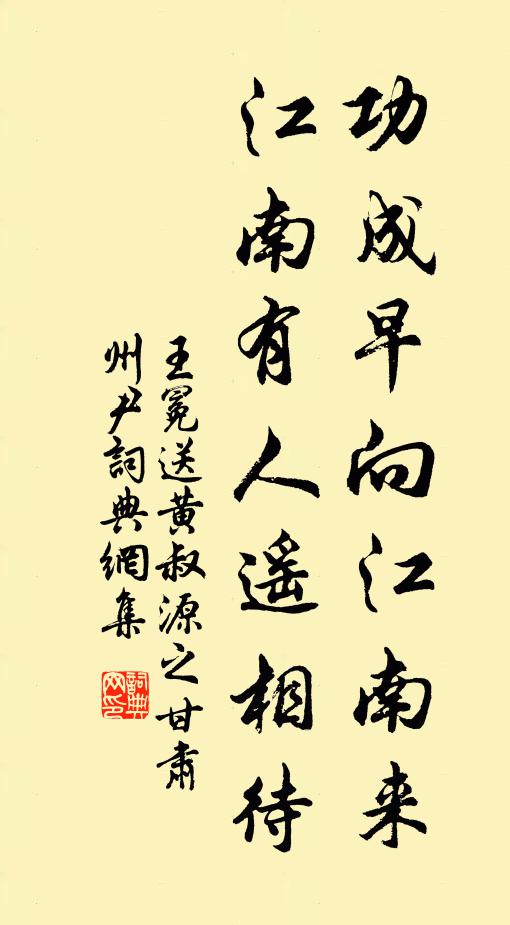 功成早向江南来
江南有人遥相待
王冕送黄叔源之甘肃
州尹詞典網集
詞典
网印